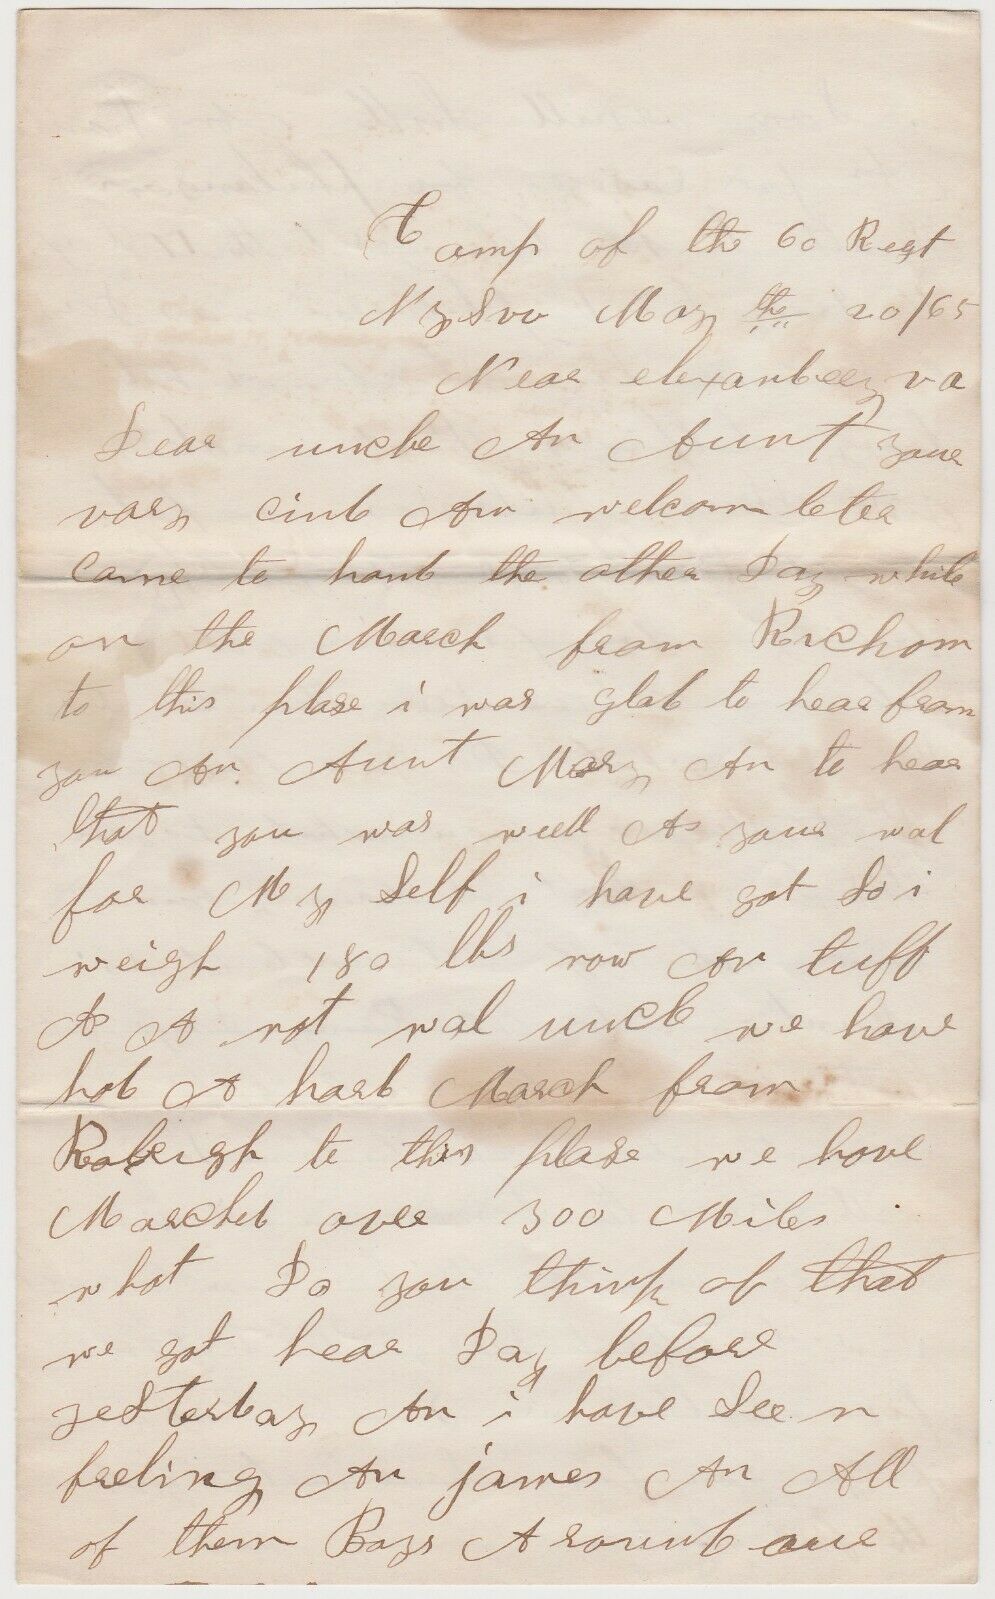 Camp of the 60 Regt
NYSvv May the 20/65
Near elexanbeey va
Dear uncke An Aunt youe
vary cinb An welcom leter
came to hanb the other Day while
on the March from Richom
to this plase i was glab to hear from
you An Aunt Mary An to hear
that you was well As youe wal
for My Self i have got So i
weigh 180 lbs now An tuff
As A not wal uncle we have
hab A harb March from
Raleigh to this plase we have
Marcheb over 300 Miles
what Do you think of that
we got hear Day before
yesterbay An i have See n
freling An james An All
of them Boys A rounb oue